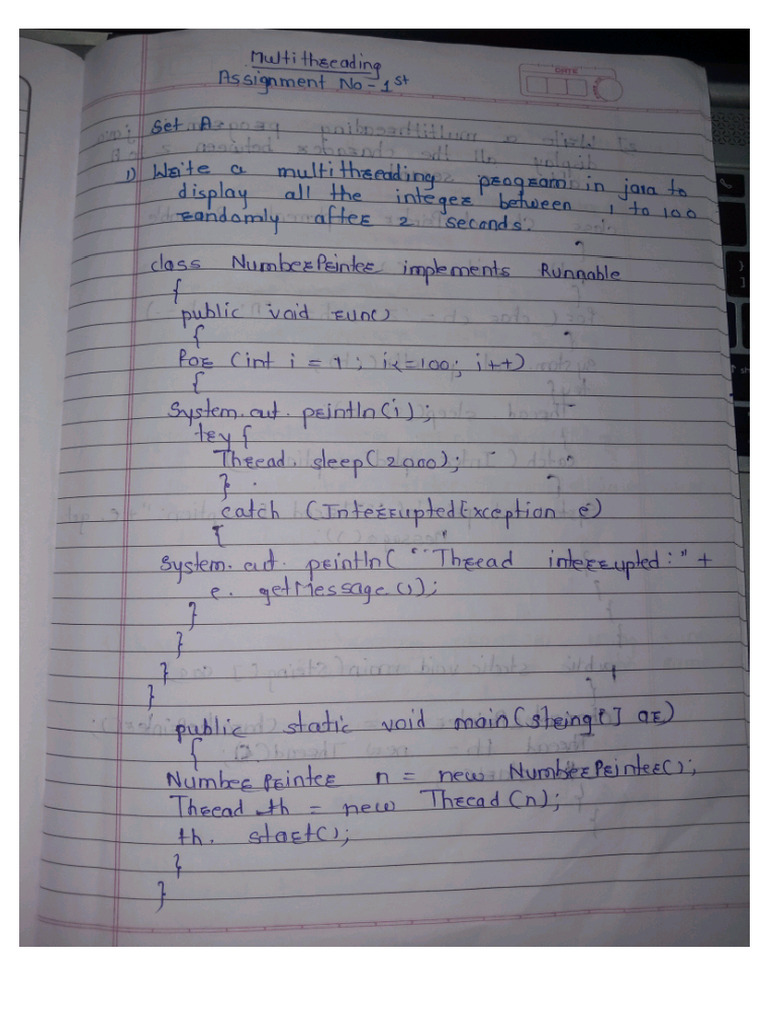 Multithreading
Assignment No - 1st
DATE
Set A
1) Write a multithreading program in java to
display all the integer between 1 to 100
randomly after 2 seconds.
class NumberPrinter implements Runnable
{
public void run()
{
for (int i = 1 ; i<=100; i++)
{
System.out.println(i);
try{
Thread.sleep(2000);
}
catch (InterruptedException e)
{
System.out.println("Thread interrupted:" +
e.getMessage());
}
}
}
}
public static void main(String[] ar)
{
NumberPrinter n = new NumberPrinter();
Thread th = new Thread(n);
th. start();
}
}